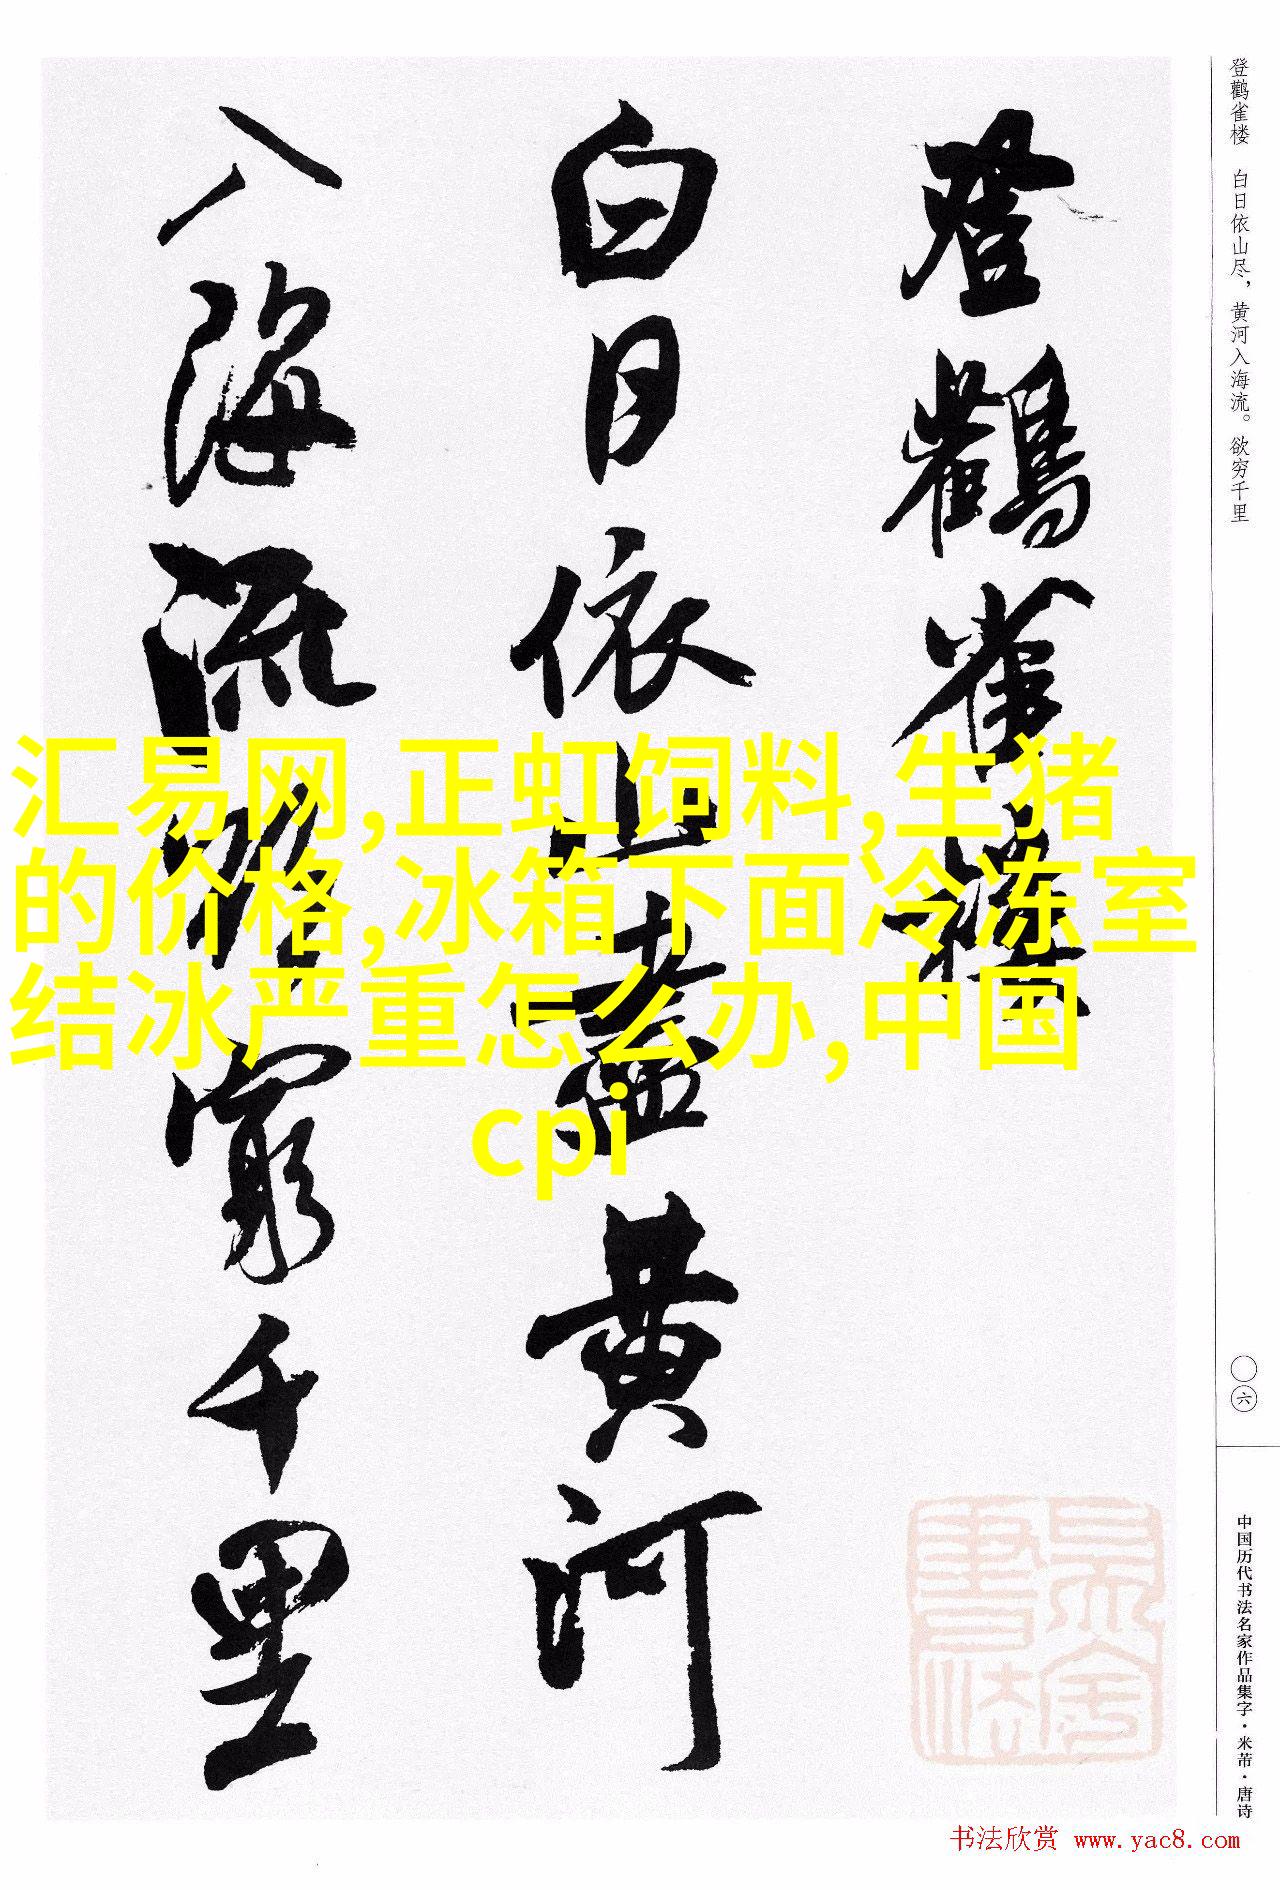 登鹳雀楼 白日依山尽，黄河入海流。欲穷千里
登鸛雀樓
白日依山盡黃河
入海流欲窮千里
汇易网,正虹饲料,生猪
的价格,冰箱下面冷冻室
结冰严重怎么办,中国
cpi
〇六
中国历代书法名家作品集字·米芾·唐诗
书法欣赏 www.yac8.com